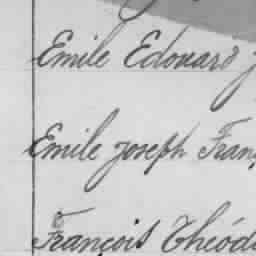 Emile Edouard
Emile Joseph Fran
François Théod